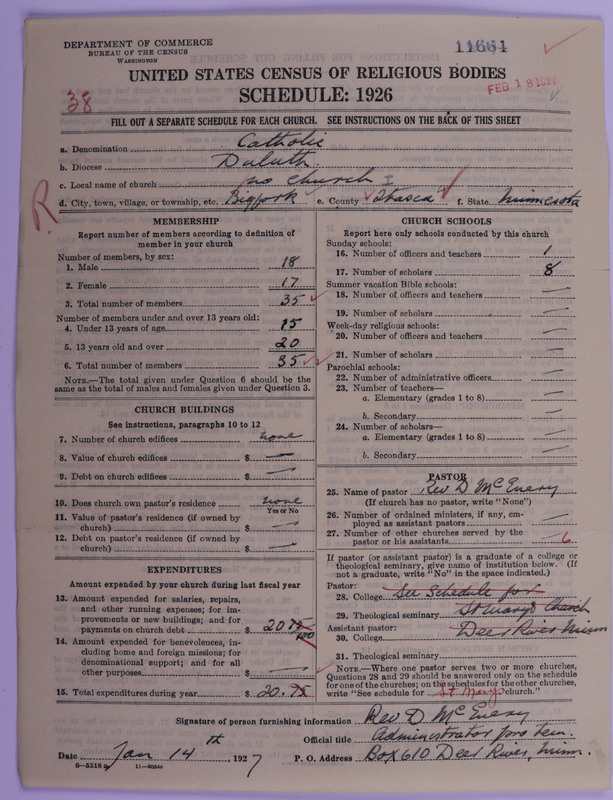 DEPARTMENT OF COMMERCE
BUREAU OF THE CENSUS
WASHINGTON
11661
FEB 18 1927
UNITED STATES CENSUS OF RELIGIOUS BODIES
SCHEDULE: 1926
38
FILL OUT A SEPARATE SCHEDULE FOR EACH CHURCH. SEE INSTRUCTIONS ON THE BACK OF THIS SHEET
a. Denomination Catholic
b. Diocese Duluth
c. Local name of church no church
d. City, town, village, or township, etc. Bigfork e. County Itasca f. State Minnesota
R
MEMBERSHIP
Report number of members according to definition of
member in your church
Number of members, by sex:
1. Male 18
2. Female 17
3. Total number of members 35
Number of members under and over 13 years old:
4. Under 13 years of age 15
5. 13 years old and over 20
6. Total number of members 35
NOTE.—The total given under Question 6 should be the
same as the total of males and females given under Question 3.
CHURCH BUILDINGS
See instructions, paragraphs 10 to 12
7. Number of church edifices none
8. Value of church edifices $ —
9. Debt on church edifices $ —
10. Does church own pastor's residence none
Yes or No
11. Value of pastor's residence (if owned by
church) $ —
12. Debt on pastor's residence (if owned by
church) $ —
EXPENDITURES
Amount expended by your church during last fiscal year
13. Amount expended for salaries, repairs,
and other running expenses; for im-
provements or new buildings; and for
payments on church debt $ 20
14. Amount expended for benevolences, in-
cluding home and foreign missions; for
denominational support; and for all
other purposes $ —
15. Total expenditures during year $ 20.
CHURCH SCHOOLS
Report here only schools conducted by this church
Sunday schools:
16. Number of officers and teachers 1
17. Number of scholars 8
Summer vacation Bible schools:
18. Number of officers and teachers —
19. Number of scholars —
Week-day religious schools:
20. Number of officers and teachers —
21. Number of scholars —
Parochial schools:
22. Number of administrative officers —
23. Number of teachers—
a. Elementary (grades 1 to 8) —
b. Secondary —
24. Number of scholars—
a. Elementary (grades 1 to 8) —
b. Secondary —
PASTOR
25. Name of pastor Rev D McEnery
(If church has no pastor, write "None")
26. Number of ordained ministers, if any, em-
ployed as assistant pastors —
27. Number of other churches served by the
pastor or his assistants 6
If pastor (or assistant pastor) is a graduate of a college or
theological seminary, give name of institution below. (If
not a graduate, write "No" in the space indicated.)
Pastor:
28. College See Schedule for
29. Theological seminary St Marys Church
Assistant pastor:
30. College Deer River Minn
31. Theological seminary
NOTE.—Where one pastor serves two or more churches,
Questions 28 and 29 should be answered only on the schedule
for one of the churches; on the schedules for the other churches,
write "See schedule for St Marys church."
Signature of person furnishing information Rev D McEnery
Official title Administrator pro tem.
Date Jan 14th, 1927 P. O. Address Box 610 Deer River, Minn.
6—5518a 11—9664